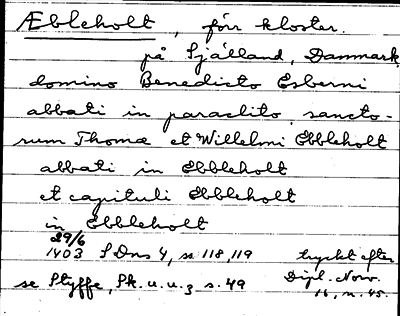 Æbleholt, förr kloster
på Själland, Danmark
domino Benedicto Esberni
abbati in paraclito sancto-
rum Thomæ et Willelmi Ebbleholt
abbati in Ebbleholt
et capituli Ebbleholt
in Ebbleholt
29/6
1403 SDns 4, ss 118, 119 tryckt efter
se Styffe, Sk. u. u. 3 s. 49 Dipl. Norv.
16, n. 45.